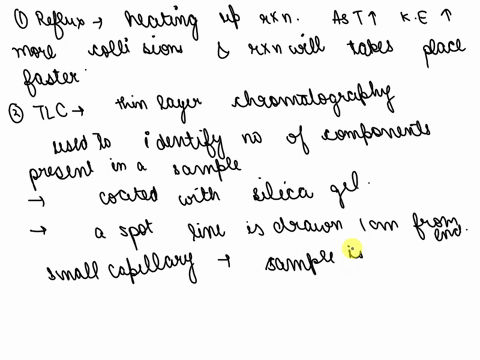 ① Reflux → heating up rxn. As T↑ K.E ↑
more collisions & rxn will takes place
faster.
② TLC → thin layer chromatography
used to identify no of components
present in a sample
→ coated with silica gel.
→ a spot line is drawn 1 cm from end.
small capillary → sample is